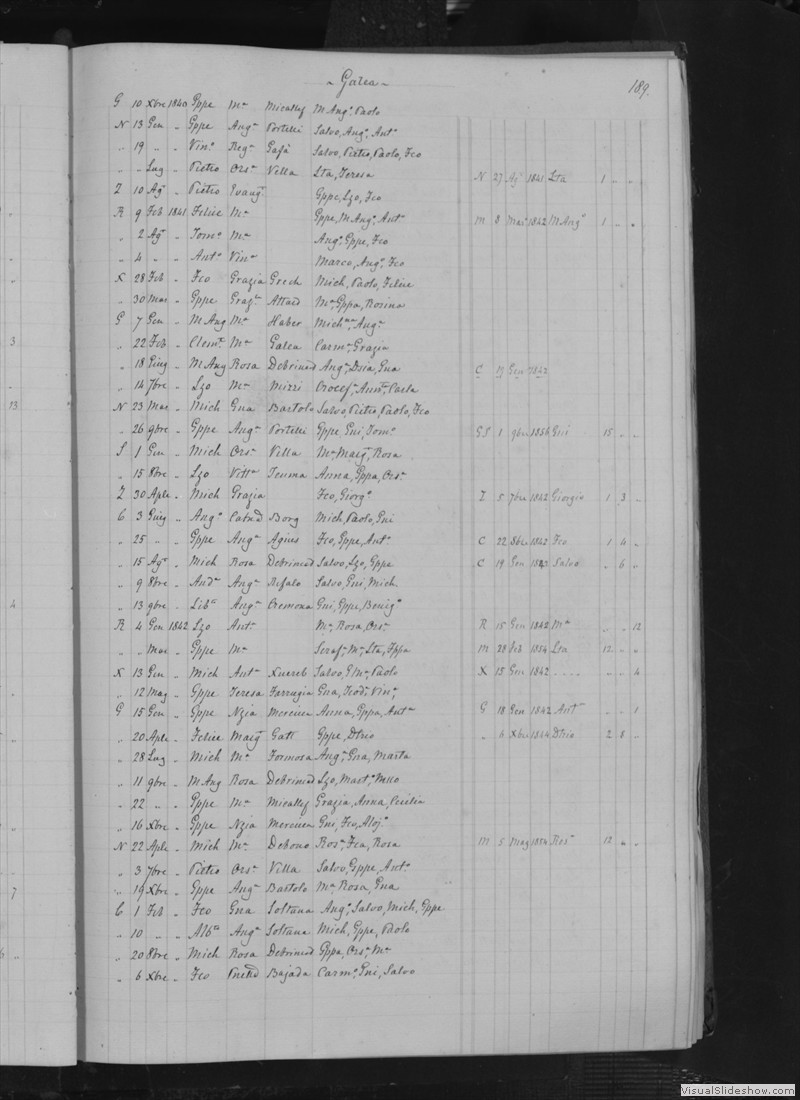 ~ Galea ~
189.
G 10 Xbre 1840 Gppe Mª Micallef M Angº, Paolo
N 13 Gen „ Gppe Angª Portelli Salvo, Angº, Antº
„ 19 „ „ Vinº Regª Gafà Salvo, Pietro, Paolo, Fco
„ „ Lug „ Pietro Orsª Vella Lta, Teresa N 27 Agº 1841 Lta 1 „ „
Z 10 Agº „ Pietro Evangª Gppe, Lzo, Fco
R 9 Feb 1841 Felice Mª Gppe, M Angº, Antº M 8 Mar 1842 M Angº 1 „ „
„ 2 Agº „ Tomº Mª Angº, Gppe, Fco
„ 4 „ „ Antº Vinª Marco, Angº, Fco
X 28 Feb „ Fco Grazia Grech Mich, Paolo, Felice
„ 30 Mar „ Gppe Grazª Attard Mª, Gppa, Rosina
G 7 Gen „ M Ang Mª Haber Angª
3 „ 22 Feb „ Clemº Mª Galea Carmº, Grazia
„ 18 Giug „ M Ang Rosa Debrincd Angª, Gna C 19 Gen 1842
„ 14 7bre „ Lzo Mª Mizzi Crocefª, Carla
13 N 23 Mar „ Mich Gna Bartolo Salvo, Pietro, Paolo, Fco
„ 26 9bre „ Gppe Angª Portelli Gppe, Gni, Tomº GS 1 9bre 1856 Gni 15 „ „
S 1 Gen „ Mich Orsª Vella Mª, Margª, Rosa
„ 15 8bre „ Lzo Vittª Teuma Anna, Gppa, Orsª
Z 30 Aple „ Mich Grazia Fco, Giorgº Z 5 7bre 1842 Giorgio 1 3 „
C 3 Giug „ Angº Catnd Borg Mich, Paolo, Gni
„ 25 „ „ Gppe Angª Agius Fco, Gppe, Antº C 22 8bre 1842 Fco 1 4 „
„ 15 Agº „ Mich Rosa Debrincd Salvo, Lzo, Gppe C 19 Gen 1842 Salvo „ 6 „
„ 9 8bre „ Andª Angª Refalo Salvo, Gni, Mich
4 „ 13 9bre „ Libº Angª Cremona Gni, Gppe, Benigº
R 4 Gen 1842 Lzo Antª Mª, Rosa, Orsª R 15 Gen 1842 Mª „ „ 12
„ „ Mar „ Gppe Mª Serafª, Mª, Lta, Gppa M 28 Feb 1854 Lta 12 „ „
X 13 Gen „ Mich Antª Xuereb Salvo, G Mª, Paolo X 15 Gen 1842 .... „ „ 4
„ 12 Mag „ Gppe Teresa Farrugia Gna, Teodª, Vinª
G 15 Gen „ Gppe Nzia Mercieca Anna, Gppa, Antª G 18 Gen 1842 Antª „ „ 1
„ 20 Aple „ Felice Margª Gatt Gppe, Dtrio „ 6 Xbre 1844 Dtrio 2 8 „
„ 28 Lug „ Mich Mª Formosa Angª, Gna, Marta
„ 11 9bre „ M Ang Rosa Debrincd Lzo, Martº,
„ 22 „ „ Gppe Mª Micallef Grazia, Anna, Cecilia
„ 16 Xbre „ Gppe Nzia Mercieca Gni, Fco, Alojº
N 22 Aple „ Mich Mª Debono Rosª, Fca, Rosa M 5 Mag 1854 Rosª 12 „ „
„ 3 7bre „ Pietro Orsª Vella Salvo, Gppe, Antº
7 „ 19 Xbre „ Gppe Angª Bartolo Mª, Rosa, Gna
C 1 Feb „ Fco Gna Soltana Angº, Salvo, Mich, Gppe
„ 10 „ „ Albº Angª Soltana Mich, Gppe, Paolo
„ 20 8bre „ Mich Rosa Debrincd Gppa, Orsª, Mª
„ 6 Xbre „ Fco Bajada Carmº, Gni, Salvo
VisualSlideshow.com